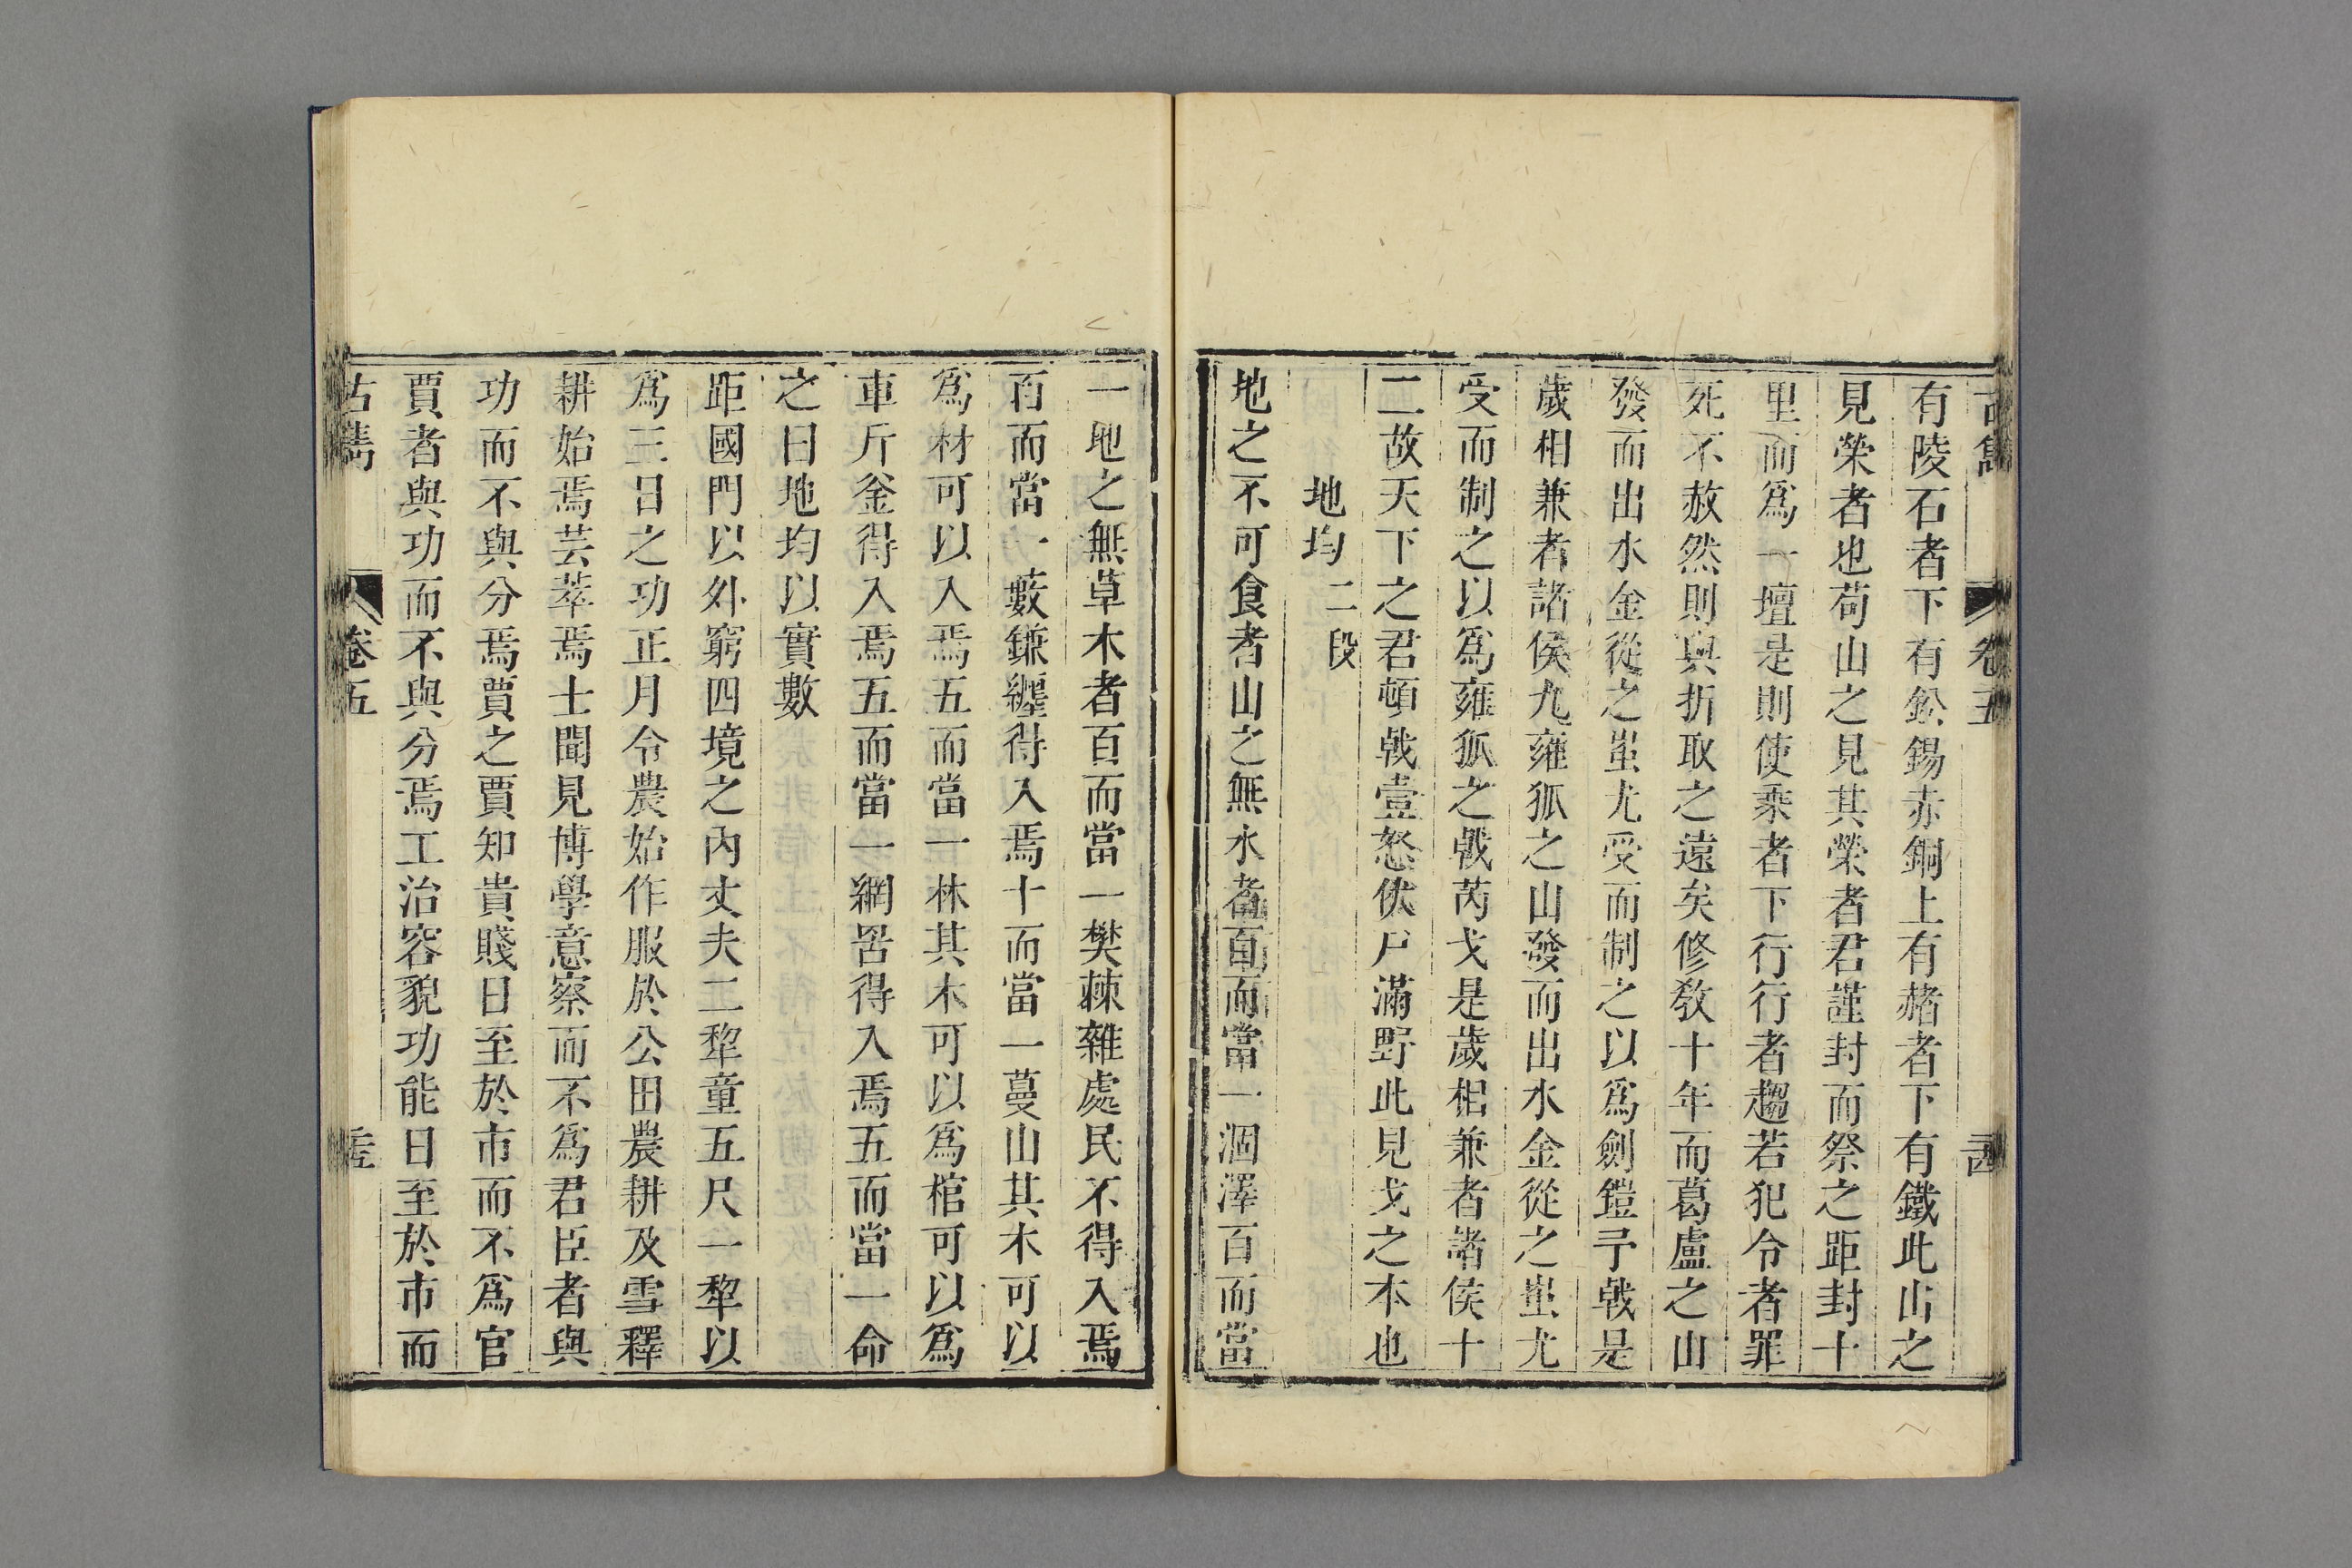 古雋 卷五
有陵石者下有鈆錫赤銅上有赭者下有鐵此山之
見榮者也苟山之見其榮者君謹封而祭之距封十
里而爲一壇是則使乘者下行行者趨若犯令者罪
死不赦然則與折取之遠矣修敎十年而葛盧之山
發而出水金從之蚩尤受而制之以爲劍鎧矛戟是
歲相兼者諸侯九雍狐之山發而出水金從之蚩尤
受而制之以爲雍狐之戟芮戈是歲相兼者諸侯十
二故天下之君頓戟壹怒伏尸滿野此見戈之本也
地均二段
地之不可食者山之無水者百而當一涸澤百而當
一地之無草木者百而當一樊棘雜處民不得入焉
百而當一藪鎌纏得入焉十而當一蔓山其木可以
爲材可以入焉五而當一林其木可以爲棺可以爲
車斤釜得入焉五而當一網罟得入焉五而當一命
之曰地均以實數
距國門以外窮四境之內丈夫二犂童五尺一犂以
爲三日之功正月令農始作服於公田農耕及雪釋
耕始焉芸莘焉士聞見博學意察而不爲君臣者與
功而不與分焉賈之賈知貴賤日至於市而不爲官
賈者與功而不與分焉工治容貌功能日至於市而
古雋 卷五